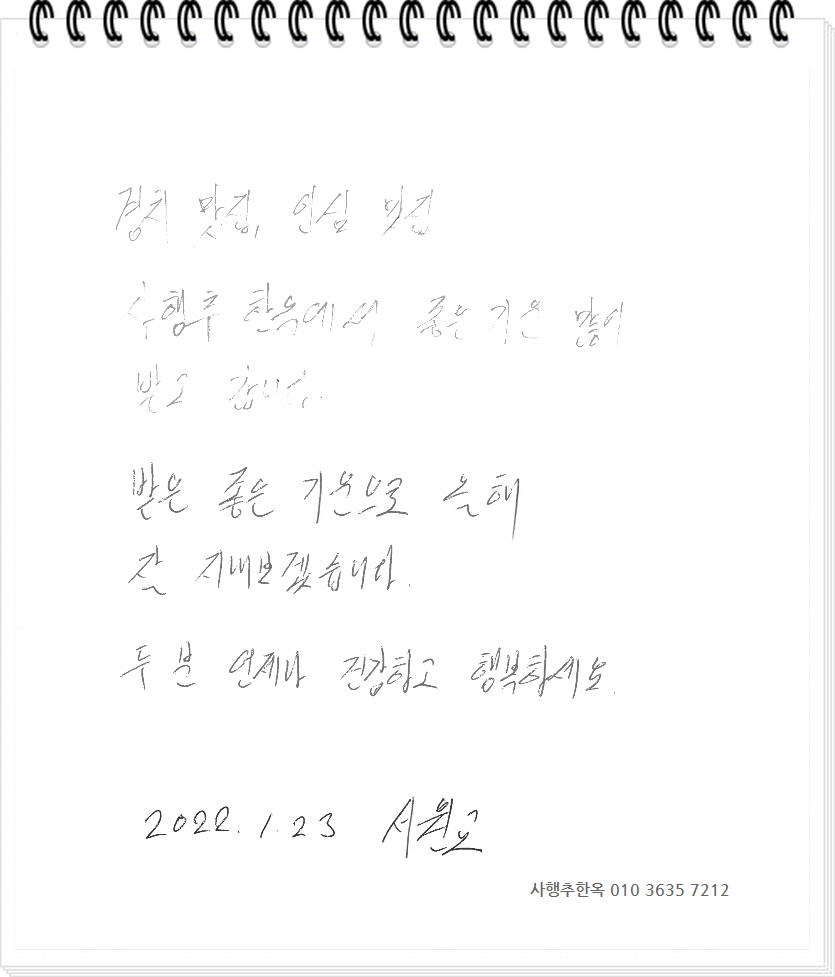 경치 맛집, 인심 맛집
사행추 한옥에서 좋은 기운 많이
받고 갑니다.
받은 좋은 기운으로 올해
잘 지내보겠습니다.
두 분 언제나 건강하고 행복하세요.
2022. 1. 23
사행추한옥 010 3635 7212